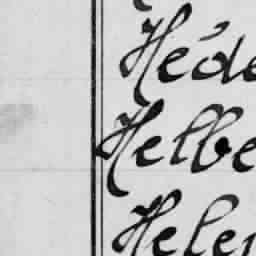 Héde
Helbe
Helen